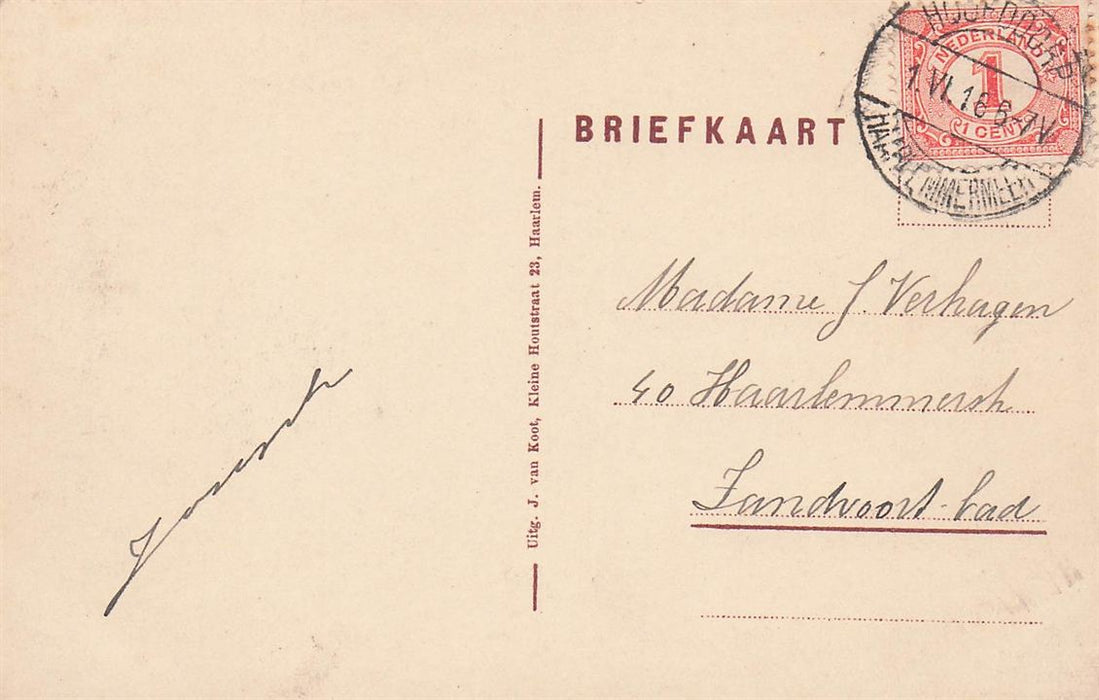 BRIEFKAART
NEDERLAND
1
1 CENT
HOOFDDORP
1.VI.16 6-7V
HAARLEMMERMEER
Madame J. Verhagen
40 Haarlemmerstr.
Zandvoort-bad
Uitg. J. van Koot, Kleine Houtstraat 23, Haarlem.